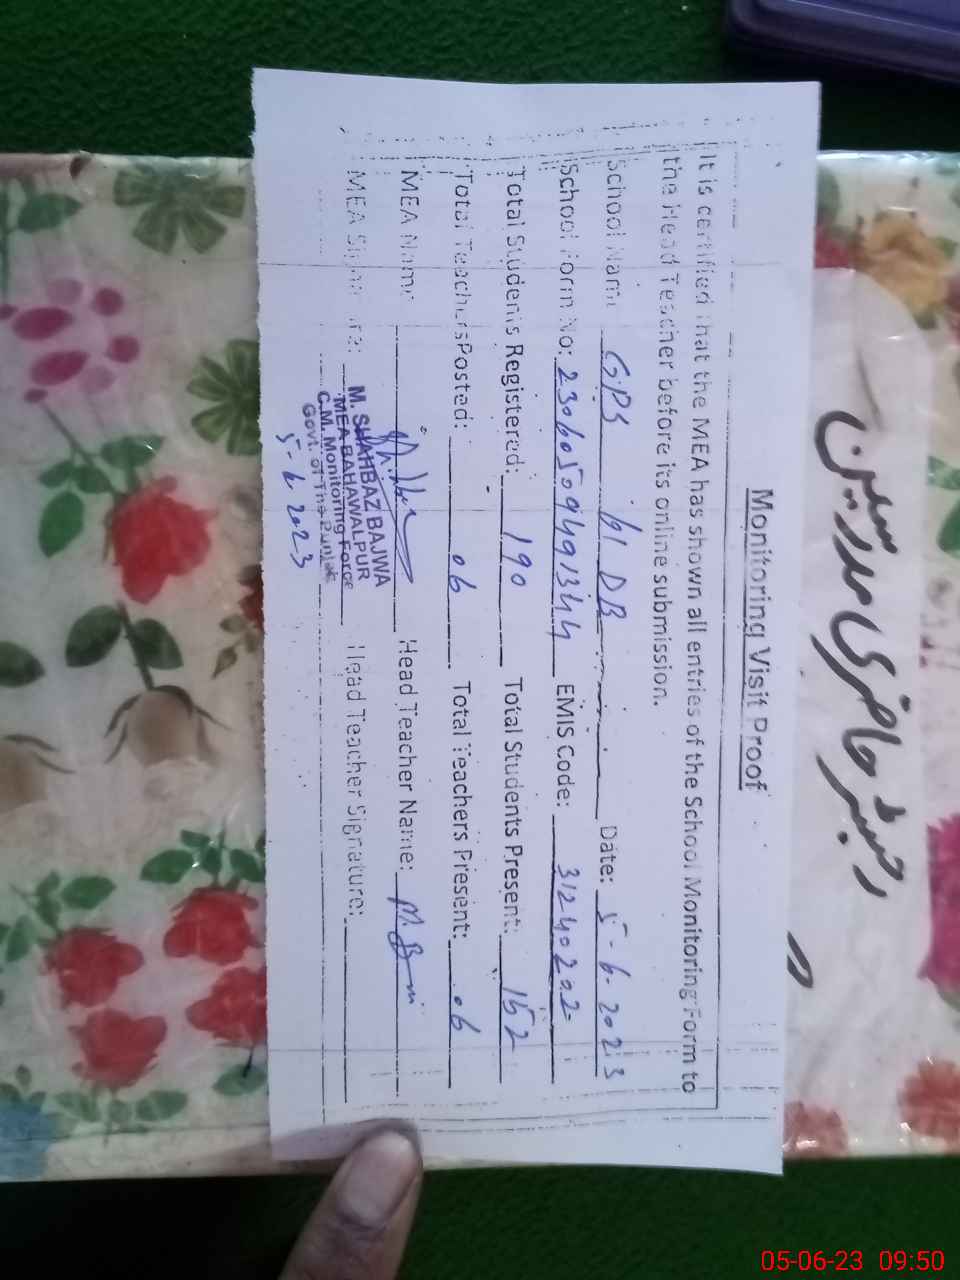 Monitoring Visit Proof
It is certified that the MEA has shown all entries of the School Monitoring Form to
the Head Teacher before its online submission.
School Name GPS 61 DB Date: 5-6-2023
School Form No: EMIS Code: 31240202
Total Students Registered: 190 Total Students Present: 152
Total Teachers Posted: 06 Total Teachers Present: 06
MEA Name Head Teacher Name:
MEA Signature: Head Teacher Signature:
M. SHAHBAZ BAJWA
MEA BAHAWALPUR
C.M. Monitoring Force
Govt. of The Punjab
5-6-2023
رجسٹر حاضری مدرسین
05-06-23 09:50